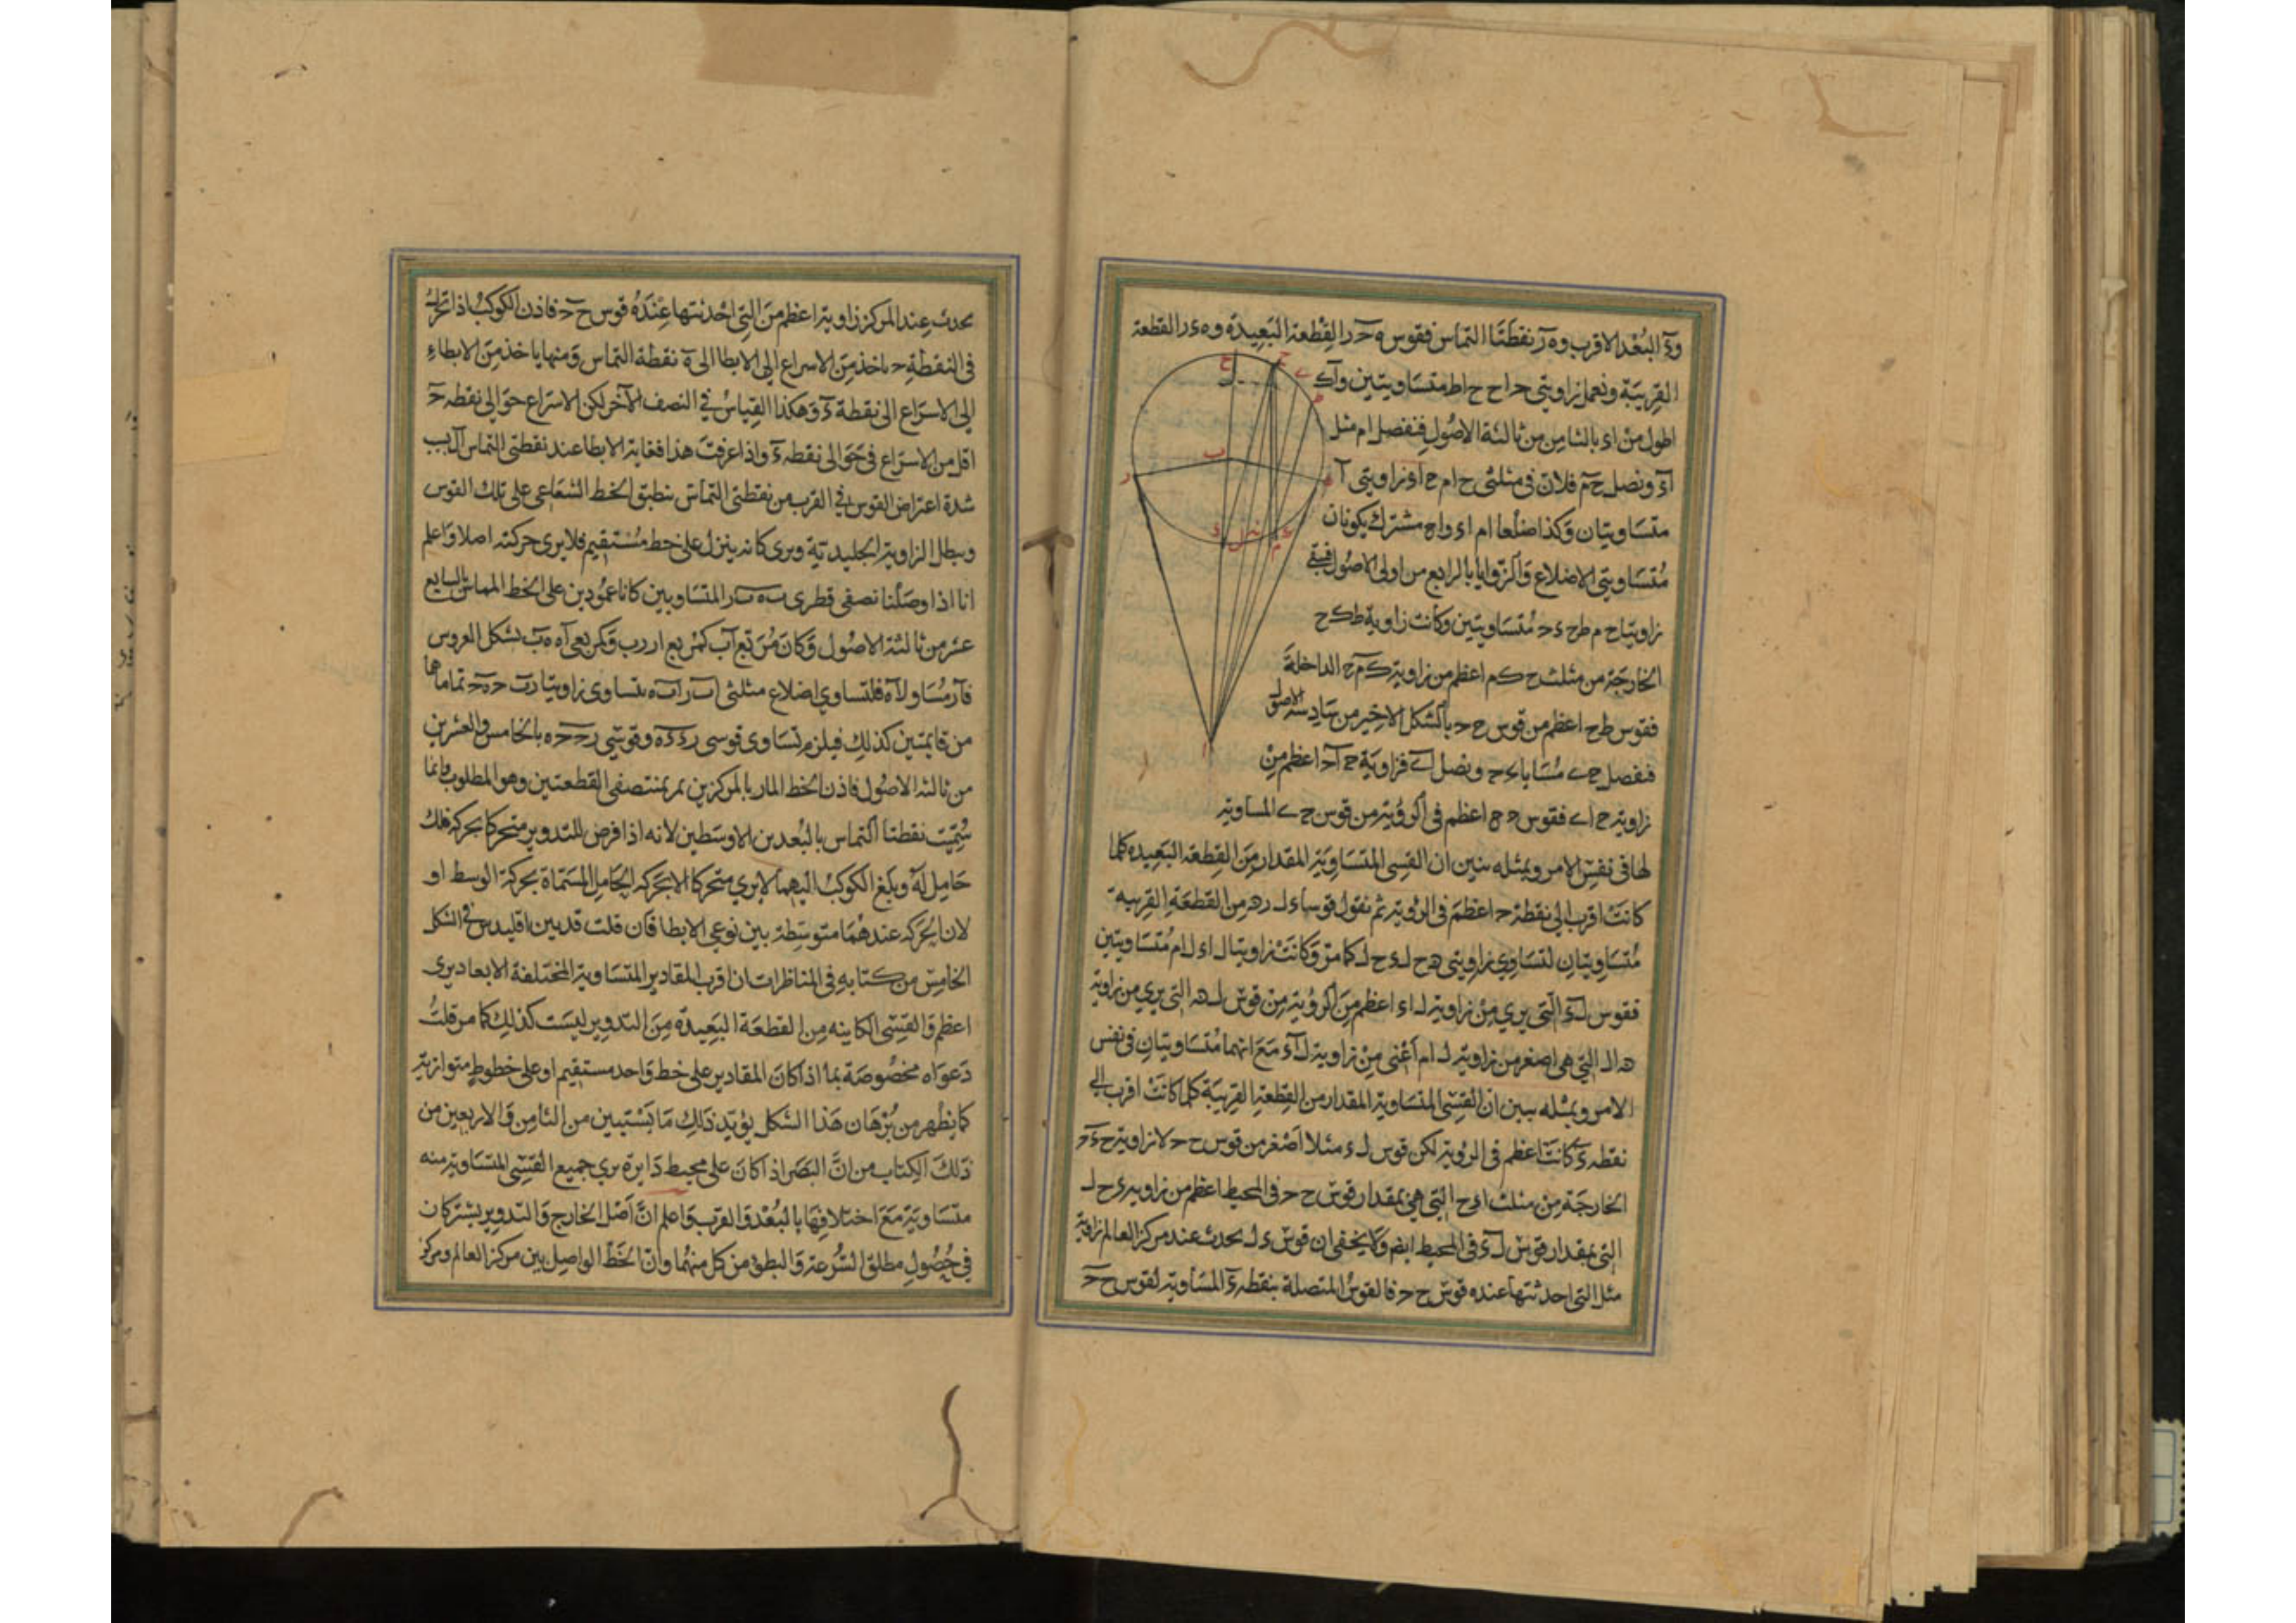 وءَ البُعْد الاقرب وه رَ نقطتَا التماس فقوس ه حَ ر القِطْعة البَعِيدَة وه ء ر القطعة
القرِيبَة ونعمل زاويتي ح ا ح ح ا ط متسَاويتين و آكَ
اطول من ا ء بالثامن من ثالثة الاصُول فنفصل ا م مثل
آءَ ونصل حَ مَ فلان في مثلثي ح ا م ح ا ءَ زاويتي آ
متسَاويتان وَكذا ضلعا ا م ا ء و ا ح مشترك يكونان
مُتسَاويتي الاضلاع وَالزوايا بالرابع من اولى الاصُول فتبقى
زاويتا ح م ط ح ء ح مُتسَاويتين وكانت زاوية ط ك ح
الخارجَة من مثلث ح ك م اعظم من زاوية ك م ح الداخلةَ
فقوس ط ح اعظم من قوس ح ح بالشكل الاخير من سَادِسة الاصول
فنفصل ح ے مسَاويا ونصل ا ے فزاويَة ح آ ح اعظم مِنْ
زاوية ح ا ے فقوس ح ح اعظم في الروُية من قوس ح ے المساوية
لها في نفسِ الامر وبمثله يتبين ان القسي المتسَاوِيَة المقدار مِنَ القِطعة البَعِيده كلما
كانتَ اقرب الى نقطة ح اعظمَ في الروية ثم نقول قوسا ء ل ر ه من القطعَةِ القريبه
مُتسَاوِيتان لتسَاوِي زاويتي ه ح ل ء ح ل كما مرّ وَكانَتْ زاويتا ل ا ء ل ا م مُتسَاويتين
فقوس ل ءَ الّتي يرى مِنْ زاوية ل ا ء اعظم مِنَ الروُية مِنْ قوسْ ل ه التي يرى من زاوية
ه ا ل التي هي اصغر من زاوية ل ا م اَعْني مِنْ زاوية ل آ ءَ مَعَ انهما مُتسَاويتانِ في نفس
الامر وبمثله يبين ان القسِيّ المتسَاوية المقدار من القِطعةِ القريبَة كلما كانَتْ اقرب الي
نقطة ءَ كانَتْ اعظم في الروية لكن قوس ل ء مثلا اَصْغر من قوس ح ح لان زاوية ح ءَ ح
الخارجَة مِن مثلث ا ء ح التي هي بمقدار قوس ح ح في المحيط اعظم من زاوية ء ح ل
التي بمقدار قوسْ ل ءَ في المحيط ايضًا وَلا يخفى ان قوسْ ء ل يحدث عند مركز العالم زاوية
مثل التي احدثتها عنده قوسْ ح ح فالقوسُ المتصلة بنقطة ءَ المسَاوية لقوسْ ح حَ
يحدث عِند المركز زاوية اعظم مِنَ التِي احْدثتها عِنْدَهُ قوس ح حَ فاذن الكوكبُ اذا تحرك
في النقطةِ ح ياخذ مِنَ الاسراع الى الابطا الى هَ نقطة التماس وَمنها ياخذ مِنَ الابطاءِ
الى الاسرَاع الى نقطة ءَ وَهكذا القِياسُ في النصف الآخر لكن الاسْرَاع حَوَالي نقطة حَ
اقل من الاسرَاع في حَوَالي نقطة ءَ واذا عرفتَ هذا فغاية الابطا عند نقطتى التماس آ بسبب
شدة اعتراض القوس في القرب من نقطتى التماسْ ينطبق الخط الشعَاعي على تلك القوس
ويبطل الزاوية الجليدية ويرى كانه ينزل على خط مُسْتقيم فلا يرى حركته اصلا وَاعلم
انا اذا وصَلْنا نصفي قطرى ب ه ب ر المتسَاويين كانا عمُودين على الخط المماس بالسابع
عشر من ثالثة الاصُول وَكانَ مُرَبّع آب كمُرَبع ا ر ر ب وَكمُربعي آه ه بَ بشكل العروس
فآ ر مُسَاو لآه فلتساوي اضلاع مثلثى ا ب ر ا ب ه يتساوى زاويتا ر ب ح ه بَ ح تماماهما
من قايمتين كذلِك فيلزم تسَاوى قوسى ر ء ءَ ه وقوسَي ر ح ح ه بالخامس والعشرين
من ثالثة الاصُول فاذن الخط المار بالمركزين يمر بمنتصفى القطعتين وهو المطلوب وانما
سُمِّيَت نقطتا التماس بالبُعدين الاوسَطين لانه اذا فرض للتدوير متحركا بحركة فلك
حَامِل لَهُ وبلغ الكوكبُ اليهما لا يرى متحركا الا بحركه الحَامِل المسَماة بحركة الوسط او
لان الحَركة عندهُمَا متوسّطة بين نوعي الابطا فان قلت قد بين اقليدس في الشكل
الخامِسْ من كتابهِ في المناظرات ان اقرب المقادير المتسَاوية المختلفة الابعاد يرى
اعظم وَالقسِيّ الكاينه مِن القطعَة البَعِيدة مِنَ التدوير ليسَت كذلِك كما مر قلتُ
دَعوَاه مخصُوصَة بما اذا كانَ المقادير على خط وَاحد مستقيم او على خطوطٍ متوازية
كما يظهر من بُرْهان هَذا الشكل يؤيّد ذَلِكَ مَا يَسْتبين من الثامِن وَالاربَعين من
ذلكَ الكِتاب من انَّ البَصَر اذا كانَ على محِيط دَايرة يرى جميع القسِيّ المتسَاوية منه
متسَاويَة مَعَ اختلافهَا بالبُعْد وَالقرب وَاعلم انَّ اَصْل الخارج وَالتدوير يشتركان
في حُصُولِ مطلق السُّرعة وَالبطؤ من كل منهُما وَانّ الخَطّ الواصِل بين مركز العالم ومركز